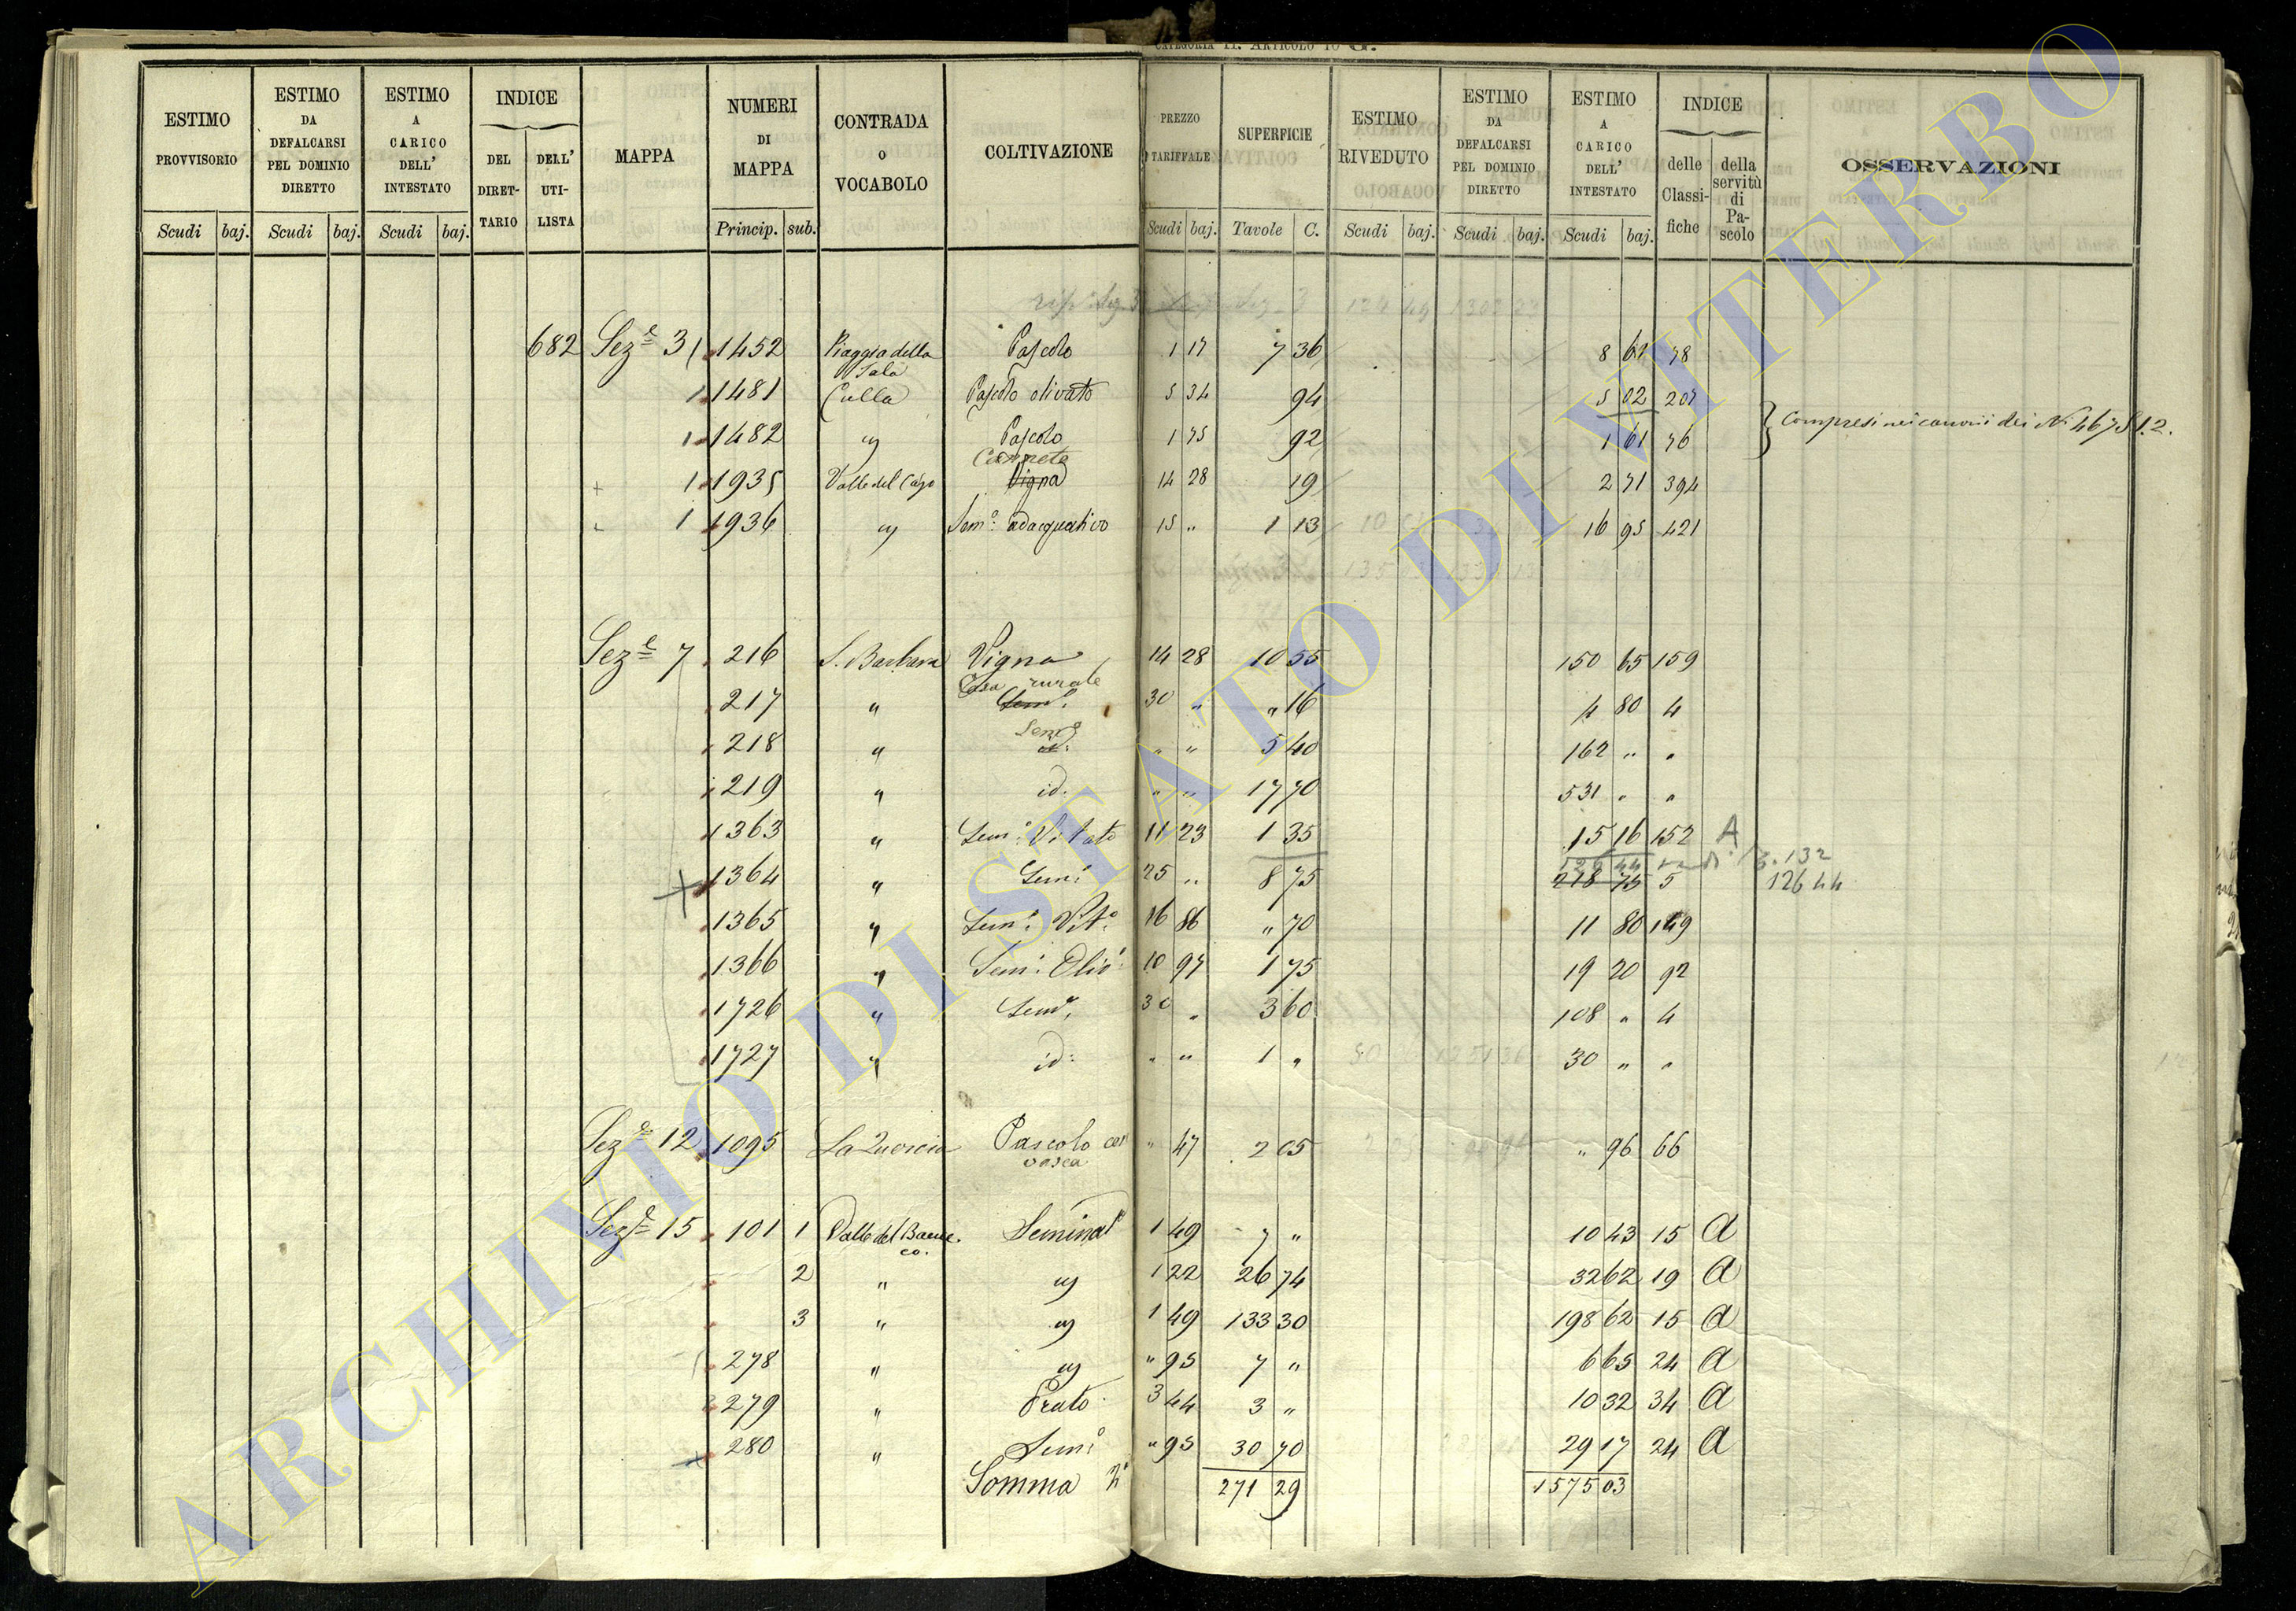 CATEGORIA II. ARTICOLO 10 G.
ESTIMO PROVVISORIO | ESTIMO DA DEFALCARSI PEL DOMINIO DIRETTO | ESTIMO A CARICO DELL' INTESTATO | INDICE DEL DIRETTARIO | DELL' UTILISTA | MAPPA | NUMERI DI MAPPA | CONTRADA O VOCABOLO | COLTIVAZIONE | PREZZO TARIFFALE | SUPERFICIE | ESTIMO RIVEDUTO | ESTIMO DA DEFALCARSI PEL DOMINIO DIRETTO | ESTIMO A CARICO DELL' INTESTATO | INDICE delle Classifiche | della servitù di Pascolo | OSSERVAZIONI
Scudi | baj. | Scudi | baj. | Scudi | baj. | Princip. | sub. | Scudi | baj. | Tavole | C. | Scudi | baj. | Scudi | baj. | Scudi | baj.
682 Sez.e 3 1452 Piaggia della Sala Pascolo 1 17 7 36 8 61 78
1481 Culla Pascolo olivato 5 34 94 5 02 207
1482 " Pascolo 1 75 92 1 61 76 Compresi nei canoni dei N. 467 S 1.2.
1935 Valle del Cajo Canneto Vigna 14 28 19 2 71 394
1936 " Sem.o adacquativo 15 " 1 13 16 95 421
Sez.e 7 216 S. Barbara Vigna 14 28 10 55 150 65 159
217 " Casa rurale Sem.o 30 " " 16 4 80 4
218 " Sem.o id. " " 5 40 162 " "
219 " id. " " 17 70 531 " "
1363 " Sem.o Vitato 11 23 1 35 15 16 152 A
1364 " Sem.o 25 " 8 75 218 75 5 132
126 44
1365 " Sem.o Vit.o 16 86 " 70 11 80 149
1366 " Sem.o Oliv.o 10 97 1 75 19 20 92
1726 " Sem.o 30 " 3 60 108 " 4
1727 " id. " " 1 " 30 " "
Sez.e 12 1095 La Quercia Pascolo con vasca " 47 2 05 " 96 66
Sez.e 15 101 1 Valle del Baucco. Seminat.o 1 49 7 " 10 43 15 A
2 " " 1 22 26 74 32 62 19 A
3 " " 1 49 133 30 198 62 15 A
278 " " " 95 7 " 6 65 24 A
279 " Prato 3 44 3 " 10 32 34 A
280 " Sem.o " 95 30 70 29 17 24 A
Somma 271 29 1575 03
ARCHIVIO DI STATO DI VITERBO